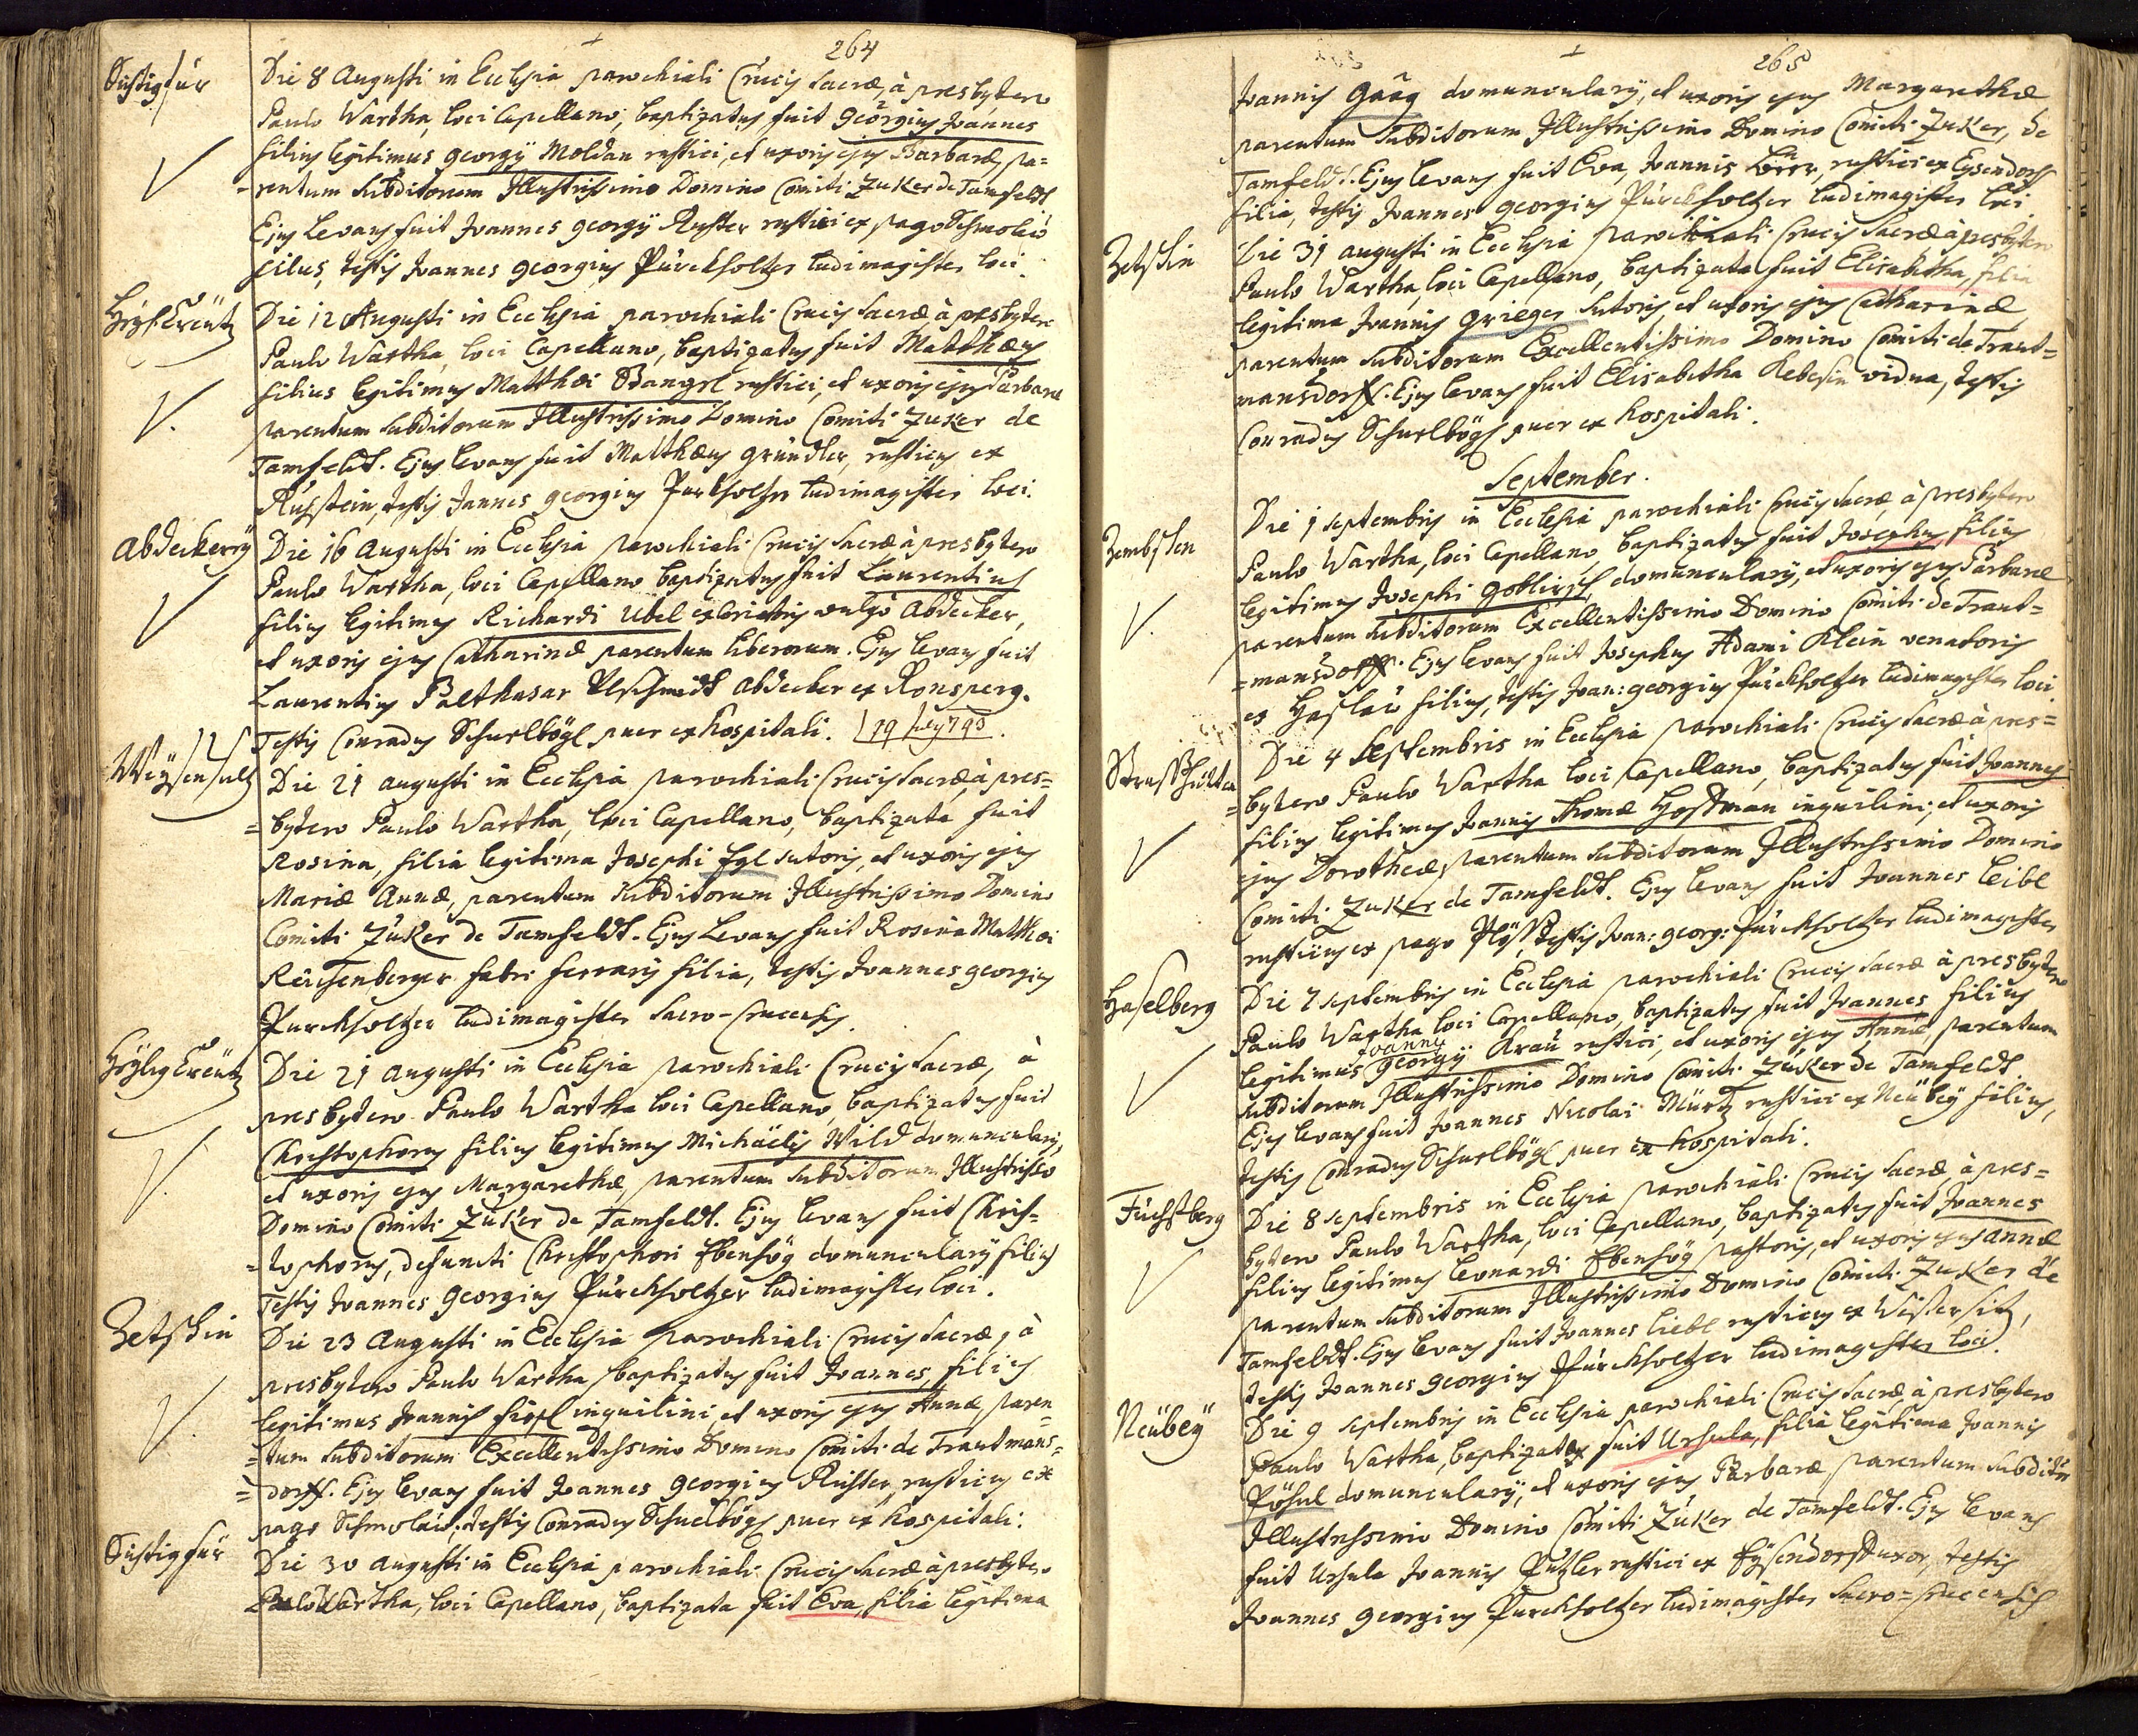 264
Sichtigfür
Die 8 Augusti in Ecclesia parochiali Crucis Sacræ, à presbytero
Paulo Wartha, loci Capellano, baptizatus fuit Georgius Joannes
filius legitimus Georgÿ Moldan rustici, et uxoris ejus Barbaræ, pa=
=rentum subditorum Illustrissimo Domino Comiti Zuker de Tamfeldt
Ejus Levans fuit Joannes Georgÿ Ruster rustici ex pago Schmolaú
filius, testis Joannes Georgius Púrckholtzer ludimagister loci.
Die 12 Augusti in Ecclesia parochiali Crucis Sacræ, à presbytero
Paulo Wartha, loci Capellano, baptizatus fuit Matthæus
filius legitimus Matthæi Stangel rustici, et uxoris ejus Barbaræ
parentum subditorum Illustrissimo Domino Comiti Zuker de
Tamfeldt. Ejus levans fuit Matthæus Gründler, rusticus ex
testis Joannes Georgius Purkholtzer ludimagister loci.
Abdeckereÿ
Die 16 Augusti in Ecclesia parochiali Crucis Sacræ, à presbytero
Paulo Wartha, loci Capellano baptizatus fuit Laurentius
filius legitimus Richardi Ubel excoriatoris vulgò Abdecker,
et uxoris ejus Catharinæ parentum liberorum. Ejus levans fuit
Laurentius Balthasar Ulschmidt abdecker ex Ronsperg.
Testis Conradus Schuelbögl puer ex hospitali.
Weÿsensultz
Die 21 Augusti in Ecclesia parochiali Crucis Sacræ, à pres=
=bytero Paulo Wartha, loci Capellano, baptizata fuit
Rosina, filia legitima Josephi Egl sutoris, et uxoris ejus
Mariæ Annæ, parentum subditorum Illustrissimo Domino
Comiti Zuker de Tamfeldt. Ejus Levans fuit Rosina Matthæi
Reichenberger fabri ferrarÿ filia, testis Joannes Georgius
Purckholtzer ludimagister Sacro-Crucensis.
Heÿligkreutz
Die 21 Augusti in Ecclesia parochiali Crucis Sacræ, à
presbytero Paulo Wartha loci Capellano, baptizatus fuit
Christophorus filius legitimus Michaëlis Wild domuncularÿ,
et uxoris ejus Margarethæ, parentum subditorum Illustrissimo
Domino Comiti Zuker de Tamfeldt. Ejus levans fuit Chris=
=tophorus, defuncti Christophori Ebenhög domuncularÿ filius
Testis Joannes Georgius Púrckholtzer ludimagister loci.
Zetschin
Die 23 Augusti in Ecclesia parochiali Crucis Sacræ, à
presbytero Paulo Wartha baptizatus fuit Joannes, filius
legitimus Joannis inquilini, et uxoris ejus Annæ, paren=
=tum subditorum Excellentissimo Domino Comiti de Trautmans=
=dorff. Ejus levans fuit Joannes Georgius Ruster, rusticus ex
pago Schmolaú, testis Conradus Schuelbögl puer ex hospitali.
Sichtigfür
Die 30 Augusti in Ecclesia parochiali Crucis Sacræ à presbytero
Paulo Wartha, loci Capellano, baptizata fuit Eva, filia legitima
265
Joannis Gaág domuncularÿ, et uxoris ejus Margarethæ
parentum subditorum Illustrissimo Domino Comiti Zuker, de
Tamfeldt. Ejus levans fuit Eva, Joannis rustici ex Eysendorf
filia, testis Joannes Georgius Púrckholtzer ludimagister loci.
Zetschin
Die 31 Augusti in Ecclesia parochiali Crucis Sacræ à presbytero
Paulo Wartha, loci Capellano, baptizata fuit Elisabetha, filia
legitima Joannis Grieger sutoris, et uxoris ejus Catharinæ,
parentum subditorum Excellentissimo Domino Comiti de Traut=
mansdorff. Ejus levans fuit Elisabetha Rebesin vidua, testis
Conradus Schuelbögl puer ex hospitali.
September.
Die 1 Septembris in Ecclesia parochiali Crucis Sacræ, à presbytero
Paulo Wartha, loci Capellano, baptizatus fuit Josephus, filius
legitimus Josephi Goblirsch, domuncularÿ, et uxoris ejus Barbaræ
parentum subditorum Excellentissimo Domino Comiti de Traut=
=mansdorff. Ejus levans fuit Josephus Adami Klein venatoris
ex Haslaú filius, testis Joan: Georgius Púrckholtzer ludimagister loci
Straßhütten
Die 4 Septembris in Ecclesia parochiali Crucis Sacræ à pres=
=bytero Paulo Wartha loci Capellano, baptizatus fuit Joannes
filius legitimus Joannis Thomæ Hoffman inquilini, et uxoris
ejus Dorotheæ, parentum subditorum Illustrissimo Domino
Comiti Zuker de Tamfeldt. Ejus levans fuit Joannes Leibl
rusticus ex pago Plöß, testis Joan: Georg: Púrckholtzer ludimagister
Haselberg
Die 7 Septembris in Ecclesia parochiali Crucis Sacræ à presbytero
Paulo Wartha loci Capellano, baptizatus fuit Joannes filius
legitimus Joannis Georgÿ Kraú rustici, et uxoris ejus Annæ, parentum
subditorum Illustrissimo Domino Comiti Zuker de Tamfeldt.
Ejus levans fuit Joannes Nicolai Mürtz rustici ex Neübeÿ filius,
testis Conradus Schuelbögl puer ex hospitali.
Fuchsberg
Die 8 Septembris in Ecclesia parochiali Crucis Sacræ, à pres=
bytero Paulo Wartha, loci Capellano, baptizatus fuit Joannes
filius legitimus Leonardi Ebenhög pastoris, et uxoris ejus Annæ
parentum subditorum Illustrissimo Domino Comiti Zuker de
Tamfeldt. Ejus levans fuit Joannes Liebl rusticus ex
testis Joannes Georgius Púrckholtzer ludimagister loci.
Neübeÿ
Die 9 Septembris in Ecclesia parochiali Crucis Sacræ, à presbytero
Paulo Wartha, baptizata fuit Ursula, filia legitima Joannis
Pöhsl domuncularÿ, et uxoris ejus Barbaræ parentum subditorum
Illustrissimo Domino Comiti Zuker de Tamfeldt. Ejus levans
fuit Ursula Joannis Putzler rustici ex Eÿsendorff uxor, testis
Joannes Georgius Purckholtzer ludimagister Sacro=Crucensis